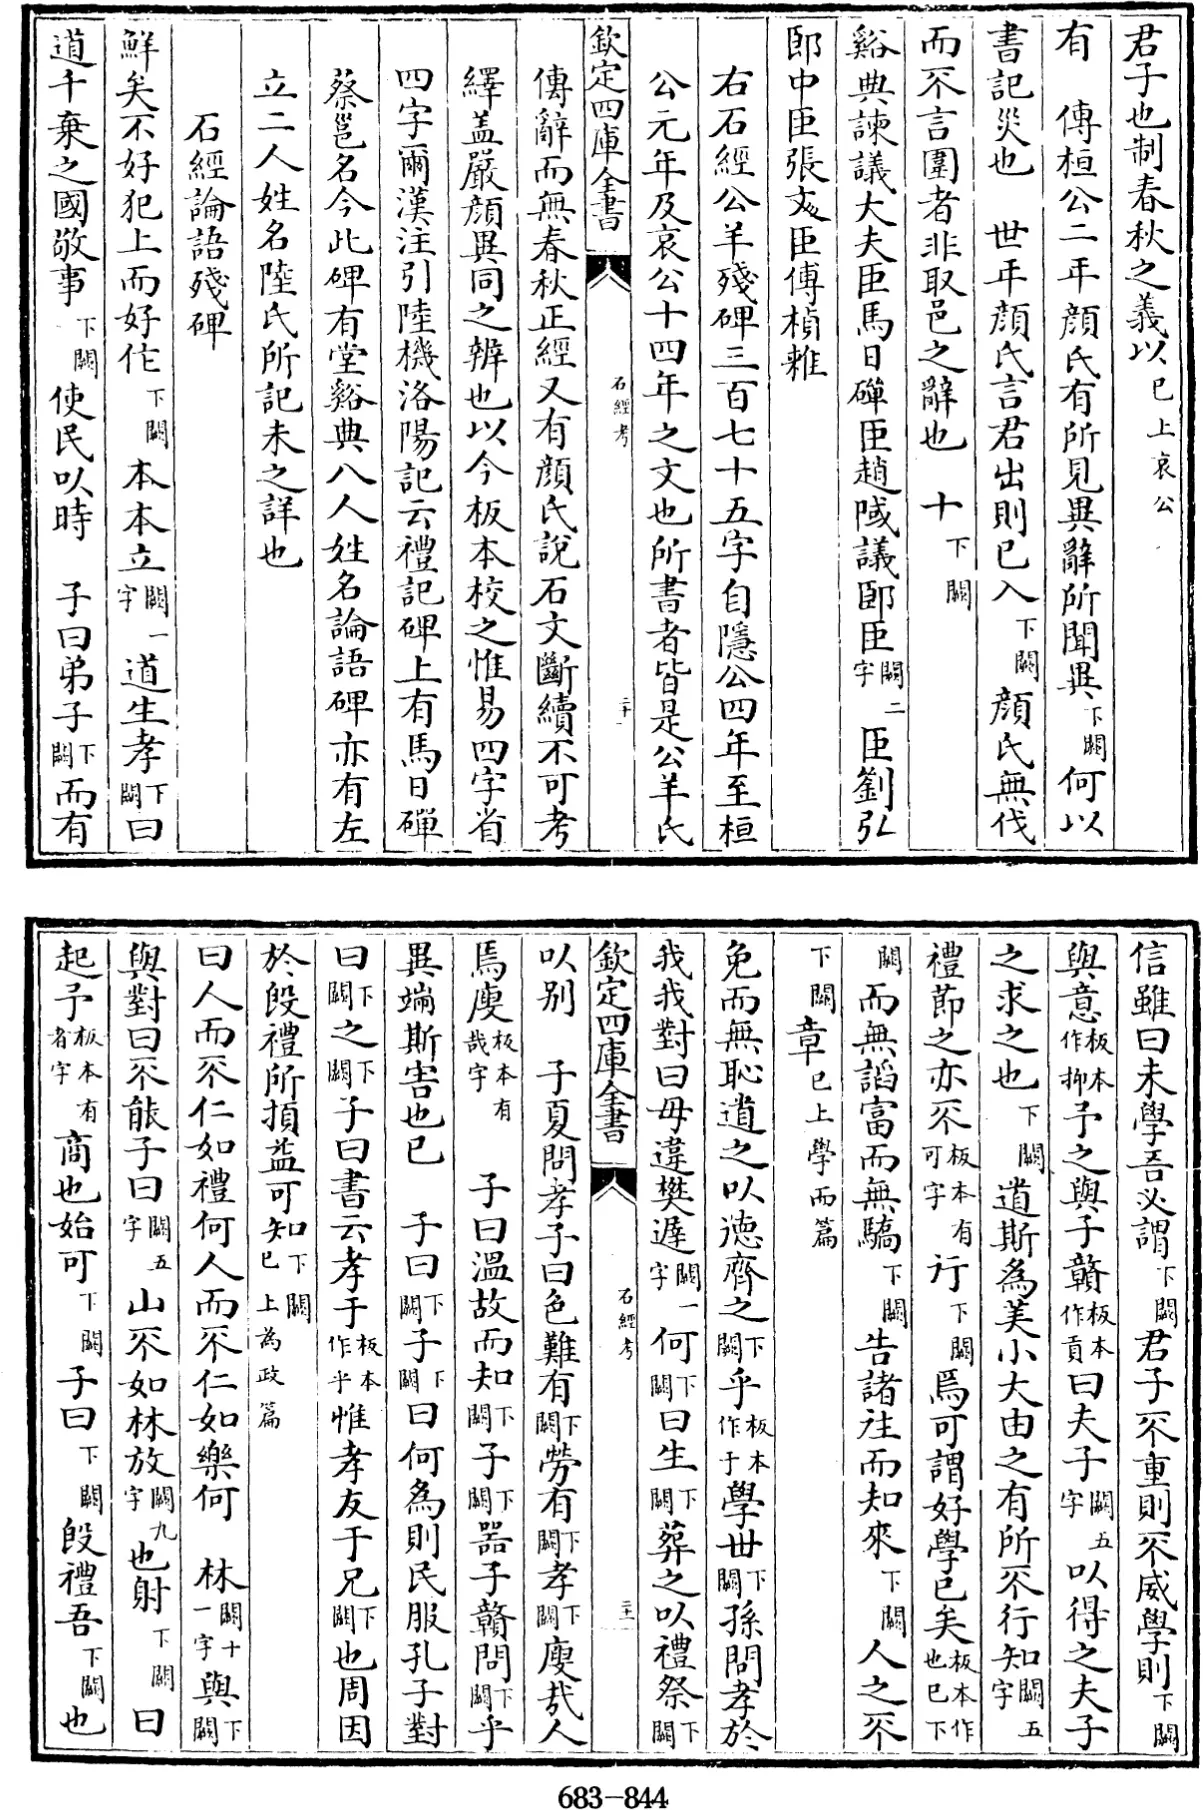 君子也制春秋之義以已上哀公
有　傳桓公二年顔氏有所見異辭所聞異下闕何以
書記災也　世年顔氏言君出則已入下闕顔氏無伐
而不言圍者非取邑之辭也　十下闕
谿典諫議大夫臣馬日磾臣趙䧕議郎臣闕二字臣劉弘
郎中臣張文臣傅楨雜
右石經公羊殘碑三百七十五字自隱公四年至桓
公元年及哀公十四年之文也所書者皆是公羊氏
欽定四庫全書
石經考
二十
傳辭而無春秋正經又有顔氏說石文斷續不可考
繹盖嚴顔異同之辨也以今板本校之惟易四字省
四字爾漢注引陸機洛陽記云禮記碑上有馬日磾
蔡邕名今此碑有堂谿典八人姓名論語碑亦有左
立二人姓名陸氏所記未之詳也
石經論語殘碑
鮮矣不好犯上而好作下闕本本立闕一字道生孝下闕曰
道千乗之國敬事下闕使民以時　子曰弟子下闕而有
信雖曰未學吾必謂下闕君子不重則不威學則下闕
與意板本作抑予之與子贛板本作貢曰夫子闕五字以得之夫子
之求之也下闕道斯為美小大由之有所不行知闕五字
禮節之亦不板本有可字行下闕焉可謂好學已矣板本作也已下
闕而無諂富而無驕下闕告諸往而知來下闕人之不
下闕章已上學而篇
免而無恥道之以德齊之下闕乎板本作于學世下闕孫問孝於
我我對曰毋違樊遲闕一字何下闕曰生下闕葬之以禮祭下闕
欽定四庫全書
石經考
二十一
以别　子夏問孝子曰色難有下闕勞有下闕孝下闕廋哉人
焉廋板本有哉字　子曰温故而知下闕子下闕器子贛問下闕乎
異端斯害也已　子曰下闕子下闕曰何為則民服孔子對
曰下闕之下闕子曰書云孝于板本作乎惟孝友于兄下闕也周因
於殷禮所損益可知下闕已上為政篇
曰人而不仁如禮何人而不仁如樂何　林闕十一字與下闕
與對曰不能子曰闕五字山不如林放闕九字也射下闕曰
起予板本有者字商也始可下闕子曰下闕殷禮吾下闕也
683-844